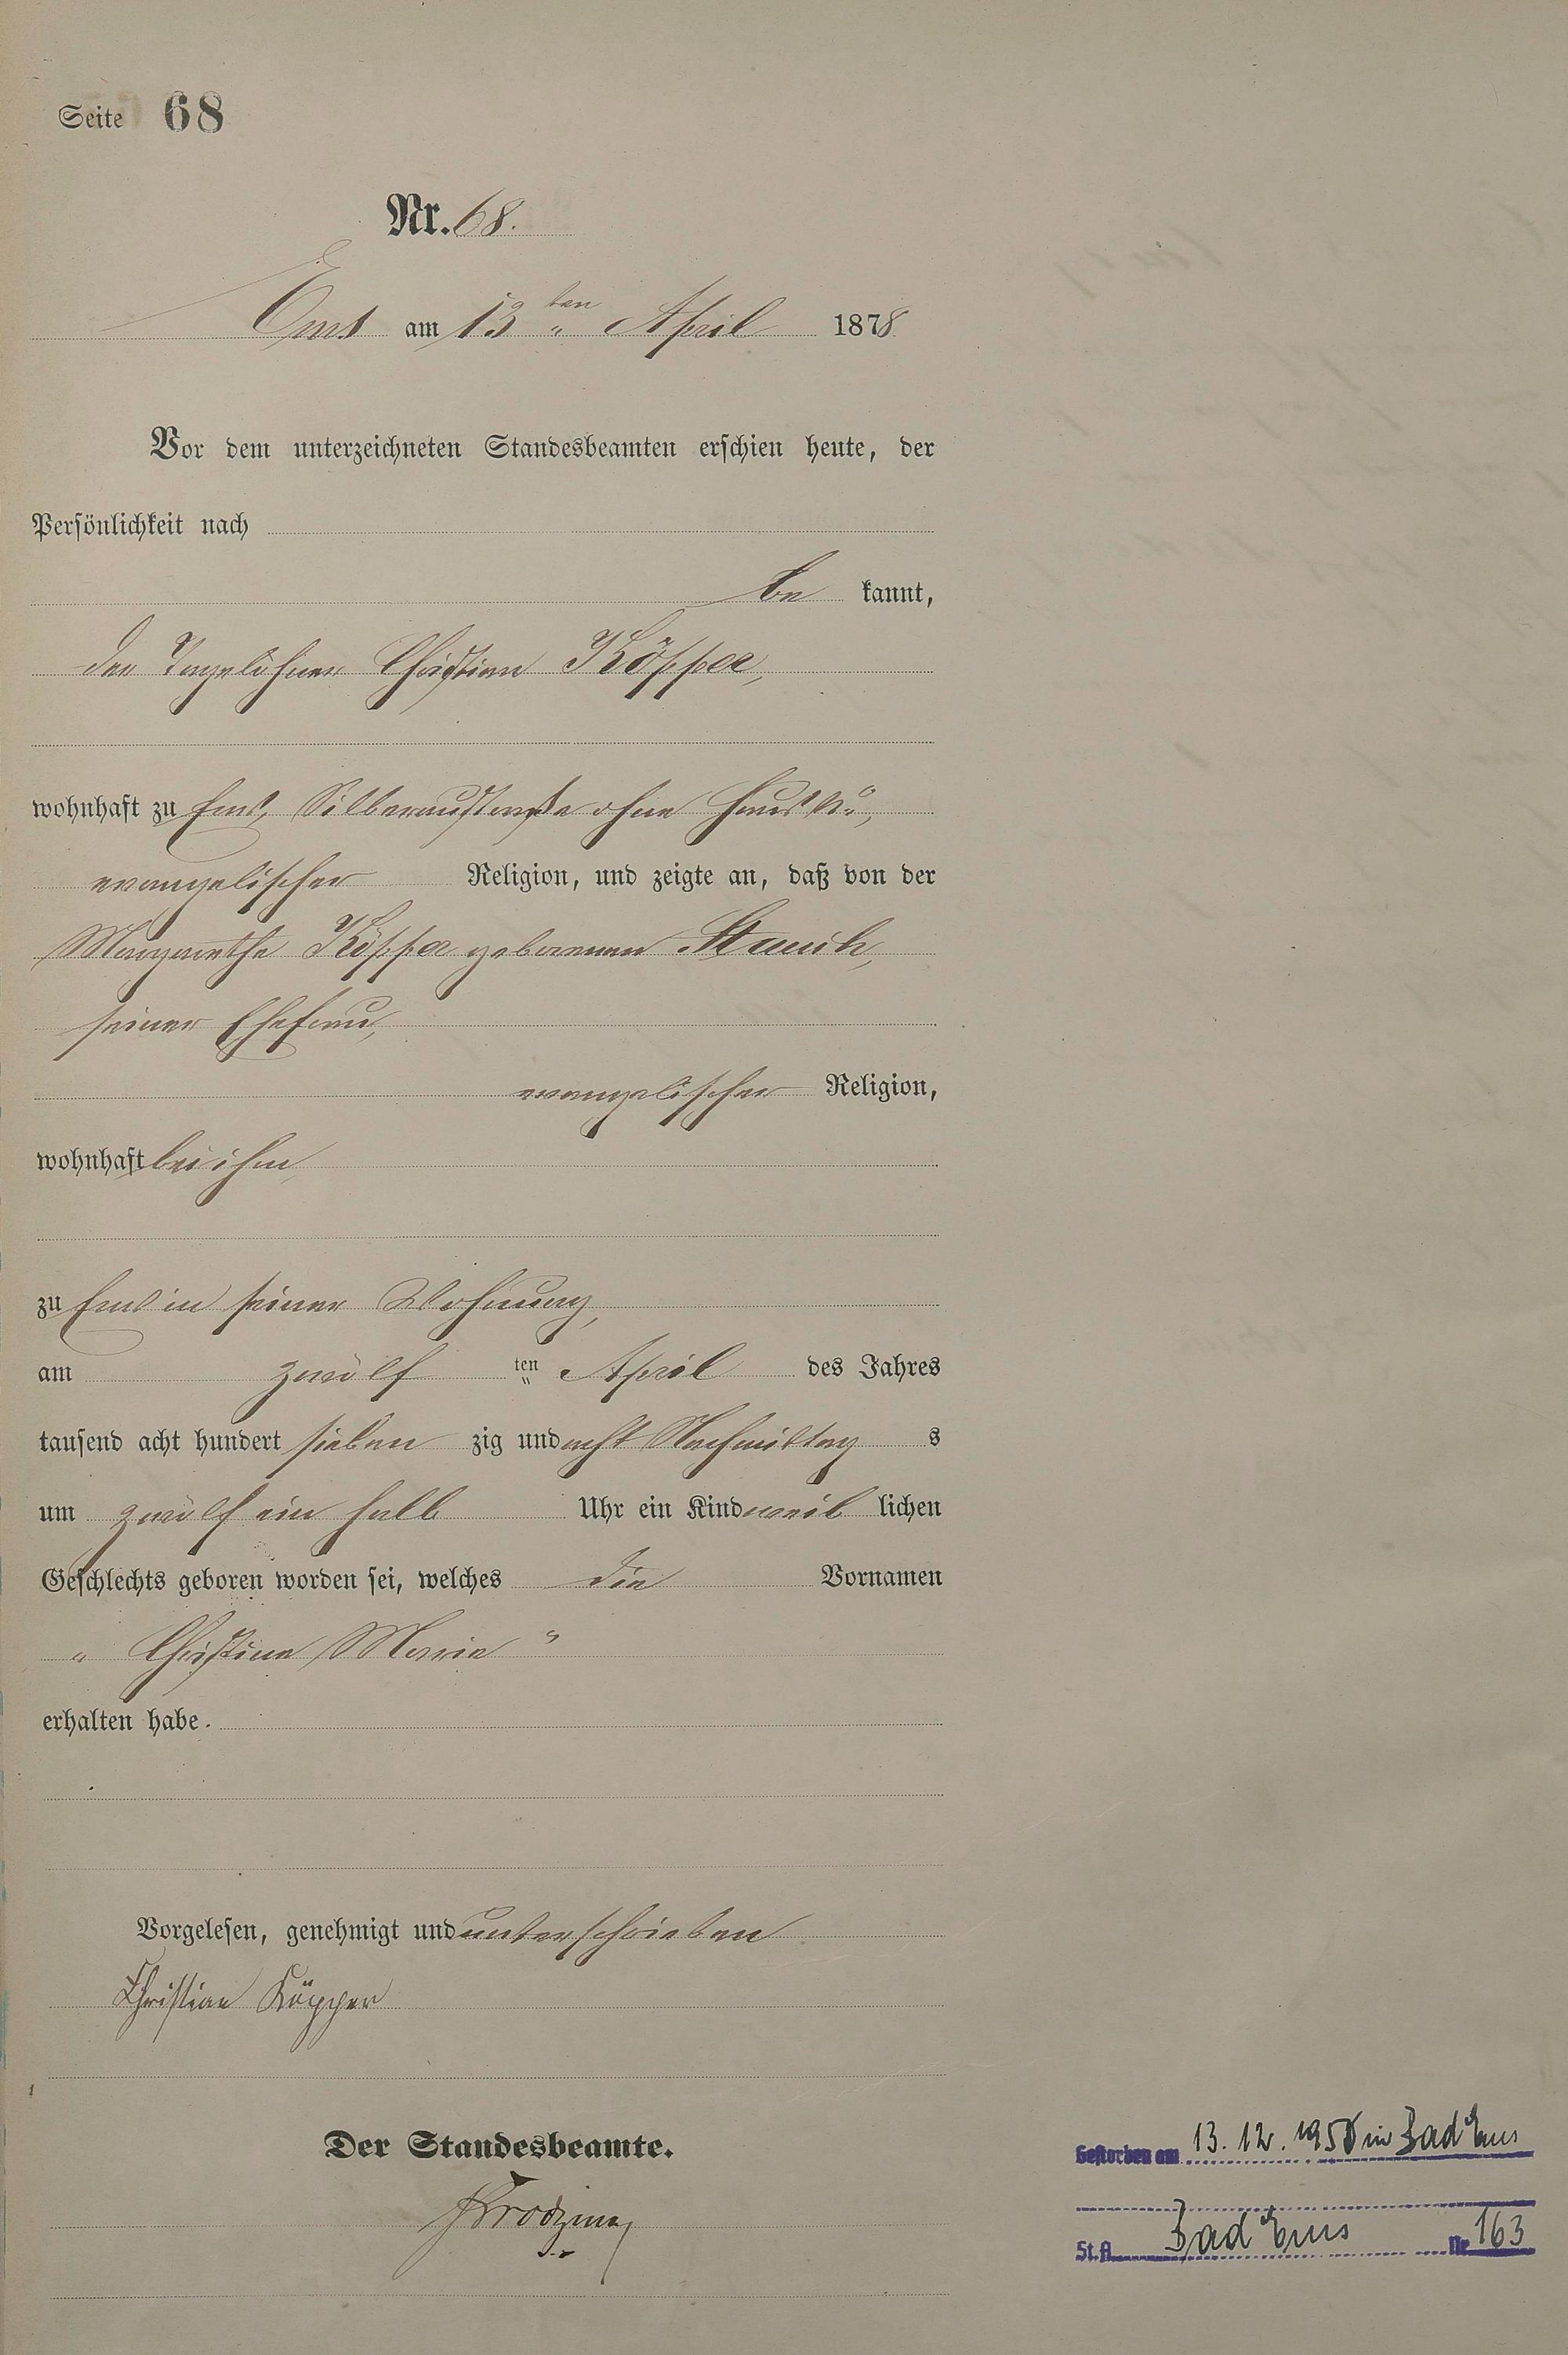 Seite 68
Nr. 68.
Ems am 13ten April 1878
Vor dem unterzeichneten Standesbeamten erschien heute, der
Persönlichkeit nach
be kannt,
der Tagelöhner Christian Köpper,
wohnhaft zu Ems, Silberaustraße ohne Haus No.,
evangelischer Religion, und zeigte an, daß von der
Margarethe Köpper geborenen
seiner Ehefrau,
evangelischer Religion,
wohnhaft bei ihm,
zu Ems in seiner Wohnung,
am zwölf ten April des Jahres
tausend acht hundert sieben zig und acht Nachmittag s
um zwölf ein halb Uhr ein Kind weib lichen
Geschlechts geboren worden sei, welches die Vornamen
„ Christine Marie “
erhalten habe.
Vorgelesen, genehmigt und unterschrieben
Christian Köpper
Der Standesbeamte.
Gestorben am 13. 12. in Bad Ems
St.A. Bad Ems Nr 163